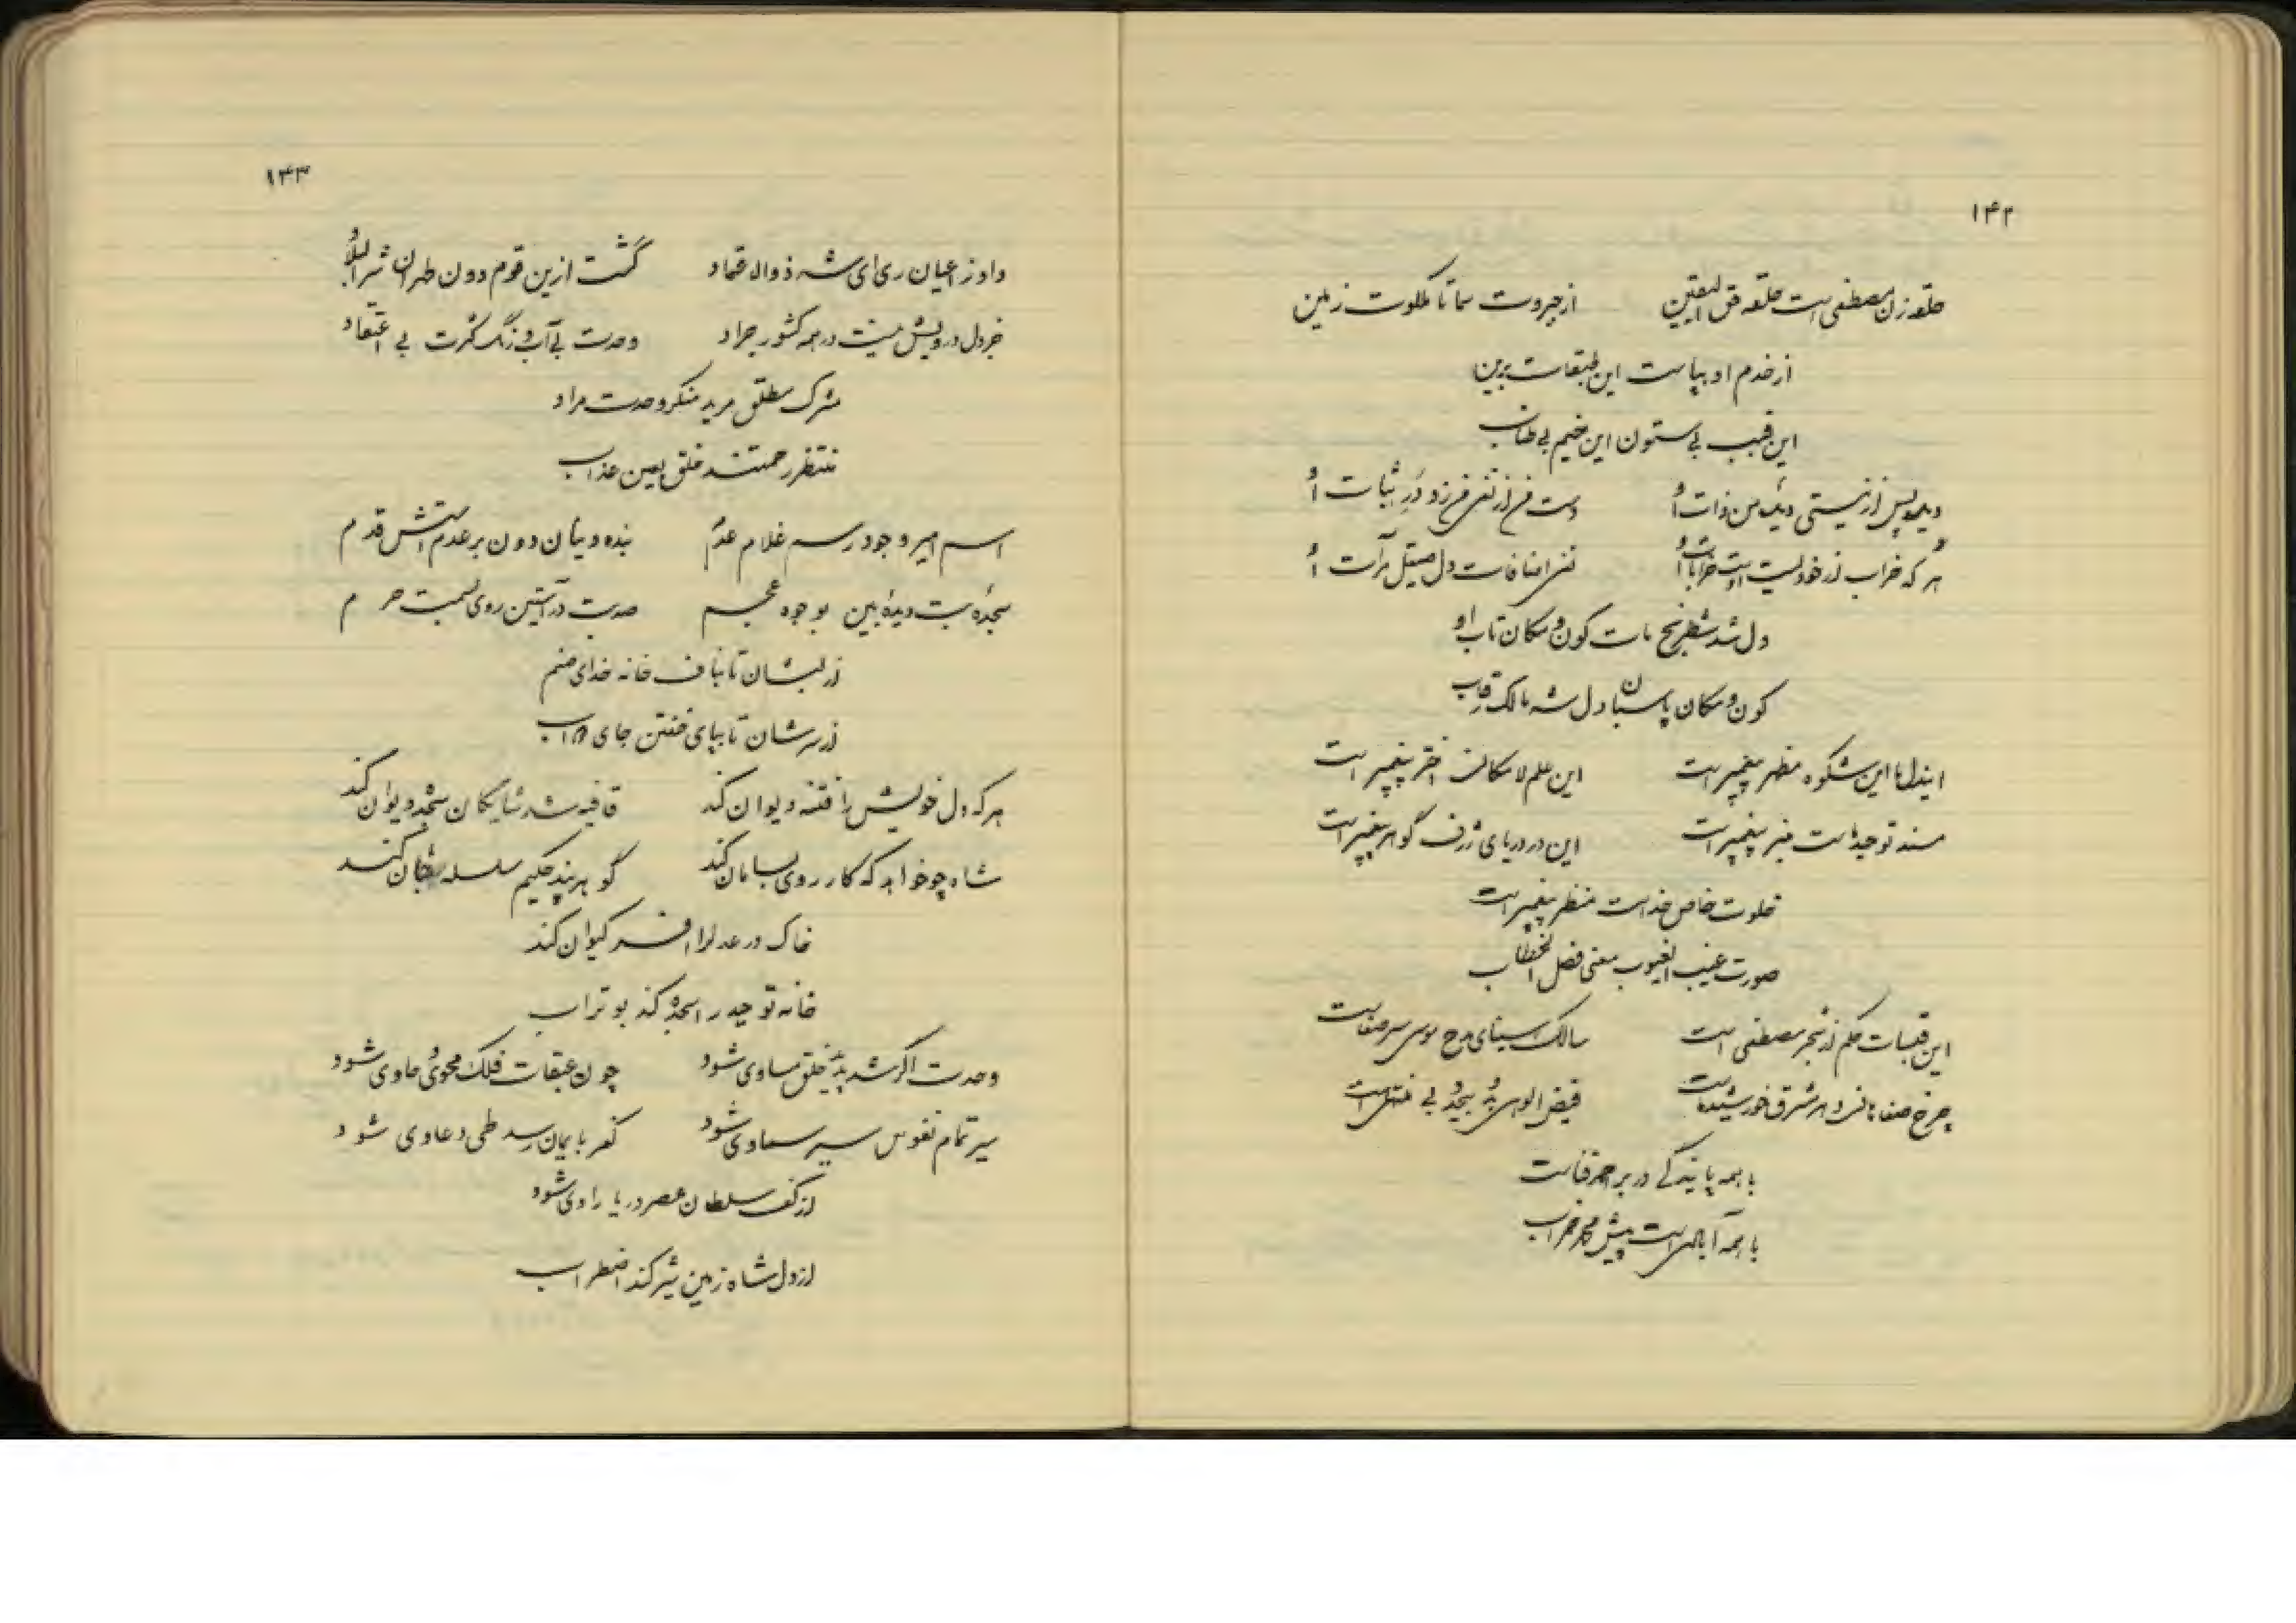 ۱۴۲
حلقه زن مصطفی است حلقه حق الیقین از جبروت سما تا ملکوت زمین
از خدم او بپاست این طبقات برین
این قبب بی ستون این خیم بی طناب
ذات او ثبات او
هر که خراب از خود نیست اوست خرابات او نفس اضافات دل صیقل مرآت او
دل شه شطرنج مات کون و مکان تاب او
کون و مکان پاسبان دل شه مالک رقاب
ایندل با این شکوه مظهر پیغمبر است این علم لامکان اختر پیغمبر است
مسند توحید است منبر پیغمبر است این در دریای ژرف گوهر پیغمبر است
خلوت خاص خداست منظر پیغمبر است
صورت غیب الغیوب معنی فصل الخطاب
این قبسات حکم از شجر مصطفی است سالک سینای روح موسی سر صفاست
چرخ صفا فیض الوهی
با همه پایندگی در بر احمد فناست
با همه آبادی است پیش محمد خراب
۱۴۳
داد ز اعیان ری ای شه ذوالاقتماد گشت ازین قوم دون طهران شرالبلاد
جز دل درویش نیست در همه کشور جواد وحدت بی آب و رنگ کثرت بی اعتقاد
مشرک مطلق مرید منکر وحدت مراد
منتظر رحمتند خلق بعین عذاب
اسم امیر وجود رسم غلام عدم بنده دینان دون بر عدمستش قدم
سجده بت دیده بین بوجوه عجم صد بت در آستین روی بسمت حرم
از لبشان تا بناف خانه خدای صنم
از سرشان تا بپای خفتن جای
هر که دل خویش را فتنه دیوان کند قافیه شد شایگان سجده دیوان کند
شاه چو خواهد که کار روی بسامان کند گو بر پند حکیم سلسله کند
خاک در عدل را افسر کیوان کند
خانه توحید را سجده کند بوتراب
وحدت اگر شد پدید خلق مساوی شود چون طبقات فلک محوی و حاوی شود
سیر تمام نفوس سیر سماوی شود کفر بایمان رسد طی دعاوی شود
از کف سلطان عصر دریا راوی شود
از دل شاه زمین شیر کند اضطراب